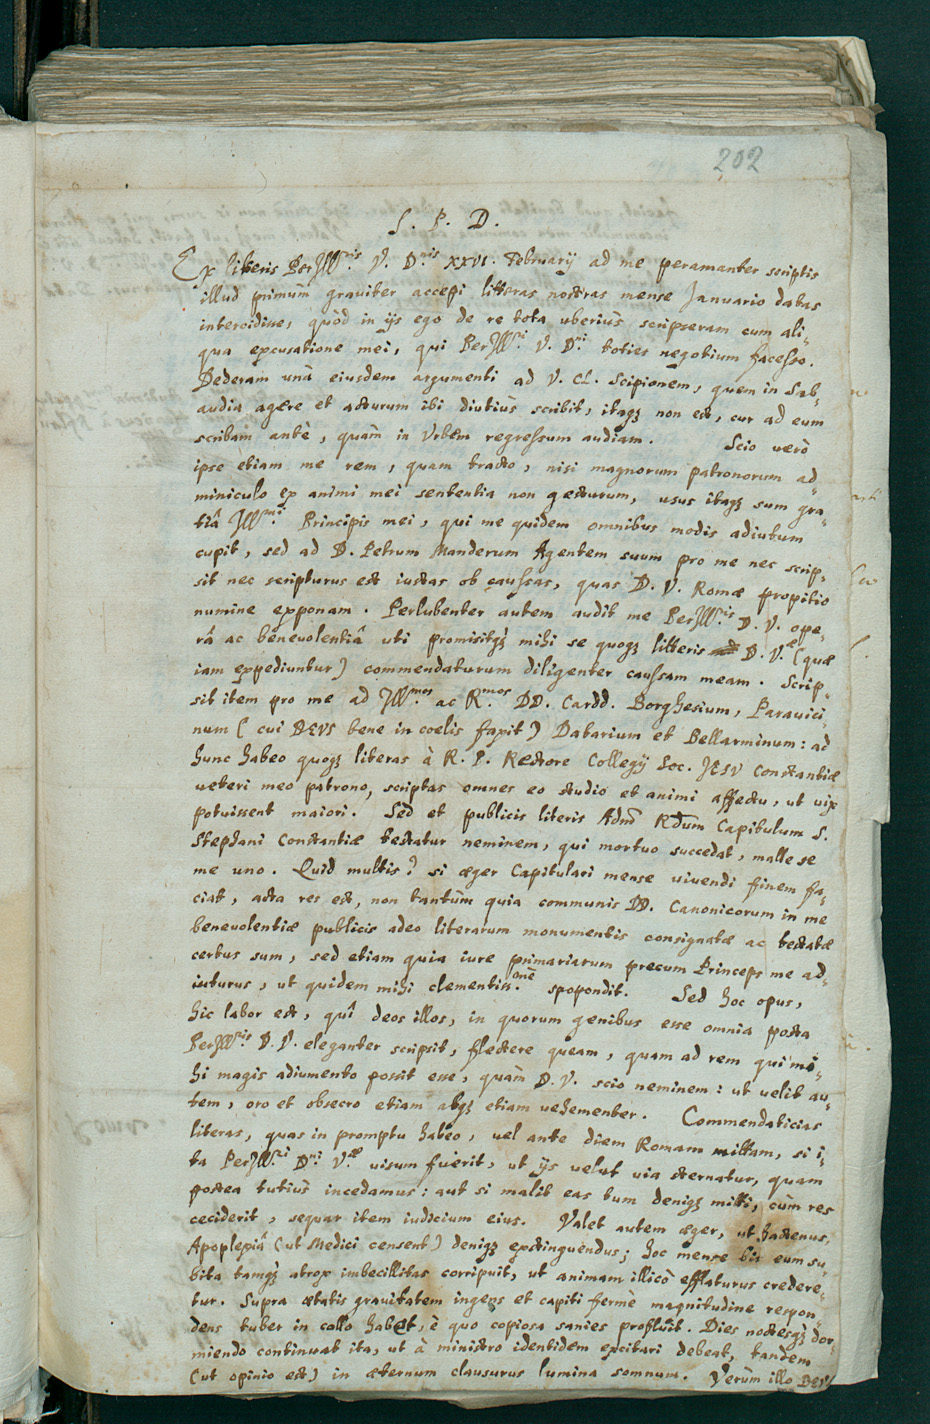 202
S. P. D.
Ex literis PerIll.ris V. D.nis XXVI. February ad me peramanter scriptis
illud primùm grauiter accepi litteras nostras mense Januario datas
intercidisse, quòd in ijs ego de re tota uberiùs scripseram cum ali-
qua excusatione mei, qui PerIll.ri V. D.ni toties negotium facesso.
Dederam unà eiusdem argumenti ad V. Cl. Scipionem, quem in Sab-
audia agere et acturum ibi diutiùs scribit, itaq3 non est, cur ad eum
scribam antè, quàm in Vrbem regressum audiam. Scio uerò
ipse etiam me rem, quam tracto, nisi magnorum patronorum ad-
miniculo ex animi mei sententia non gesturum, usus itaq3 sum gra-
tiâ Ill.mi Principis mei, qui me quidem omnibus modis adiutum
cupit, sed ad D. Petrum Manderum Agentem suum pro me nec scrip-
sit nec scripturus est iustas ob caussas, quas D. V. Romæ propitio
numine exponam. Perlubenter autem audit me PerIll.ris D. V. ope-
râ ac beneuolentiâ uti promisitq3 mihi se quoq3 litteris D. V.æ (quæ
iam expediuntur) commendaturum diligenter caussam meam. Scrip-
sit item pro me ad Ill.mos ac R.mos DD. Cardd. Borghesium, Parauici-
num (cui DEVS bene in coelis faxit) Datarium et Bellarminum: ad
hunc habeo quoq3 literas à R. P. Rectore Collegij Soc. JESV Constantiæ
ueteri meo patrono, scriptas omnes eo studio et animi affectu, ut uix
potuissent maiori. Sed et publicis literis Adm̃ Rdum Capitulum S.
Stephani Constantiæ testatur neminem, qui mortuo succedat, malle se
me uno. Quid multis? si æger Capitulari mense uiuendi finem fa-
ciat, acta res est, non tantùm quia communis DD. Canonicorum in me
beneuolentiæ publicis adeo literarum monumentis consignatæ ac testatæ
certus sum, sed etiam quia iure primariarum precum Princeps me ad-
iuturus, ut quidem mihi clementiss.mè spopondit. Sed hoc opus,
hic labor est, quî deos illos, in quorum genibus esse omnia posta
PerIll.ris D. V. eleganter scripsit, flectere queam, quam ad rem qui mi-
hi magis adiumento possit esse, quàm D. V. scio neminem: ut uelit au-
tem, oro et obsecro etiam atq3 etiam uehementer. Commendaticias
literas, quas in promptu habeo, uel ante diem Romam mittam, si i-
ta PerIll.ri D.ni V.æ uisum fuerit, ut ijs uelut uia sternatur, quam
postea tutiùs incedamus: aut si malit eas tum deniq3 mitti, cùm res
ceciderit, sequar item iudicium eius. Valet autem æger, ut hactenus,
Apoplexiâ (ut Medici censent) deniq3 exstinguendus; hoc mense bis eum su-
bita tamq3 atrox imbecillitas corripuit, ut animam illicò efflaturus credere-
tur. Supra ætatis grauitatem ingens et capiti fermè magnitudine respon-
dens tuber in collo habet, è quo copiosa sanies profluit. Dies noctesq3 dor-
miendo continuat ita, ut à ministro identidem excitari debeat, tandem
(ut opinio est) in æternum clausurus lumina somnum. Verùm illo DEVS